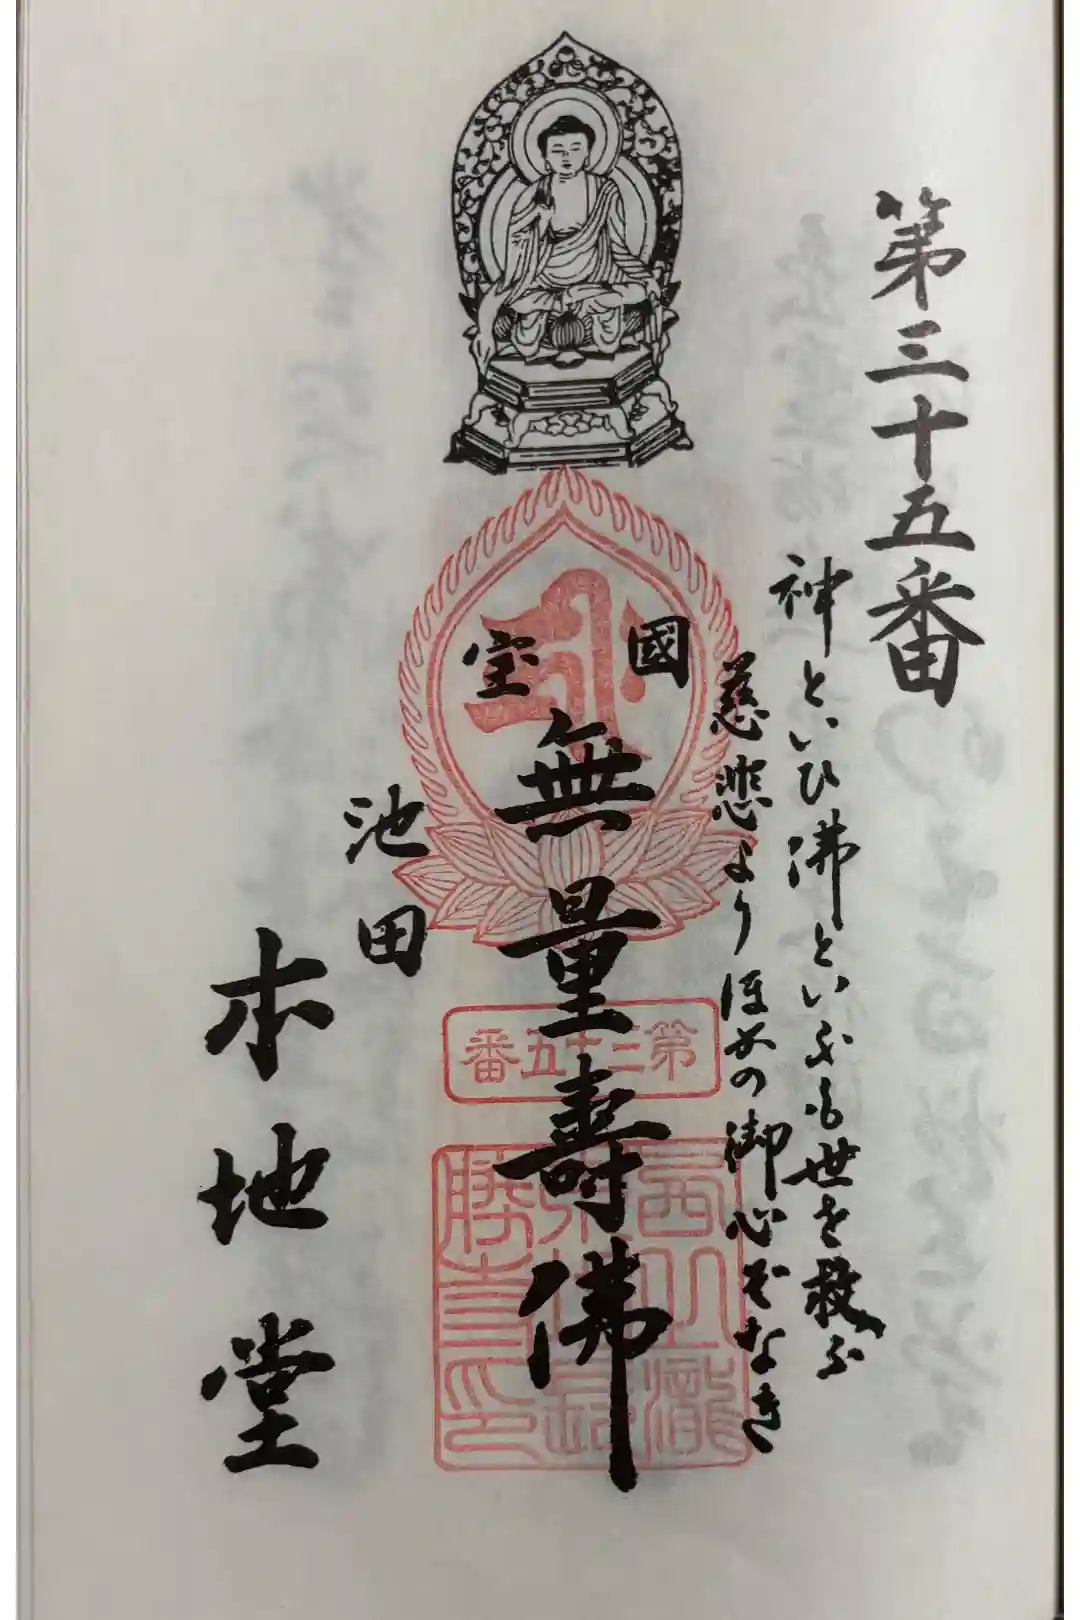 第三十五番
神といひ佛といふも世を救ふ
慈悲よりほかの御心ぞなき
國宝
無量壽佛
池田
本地堂
第三十五番